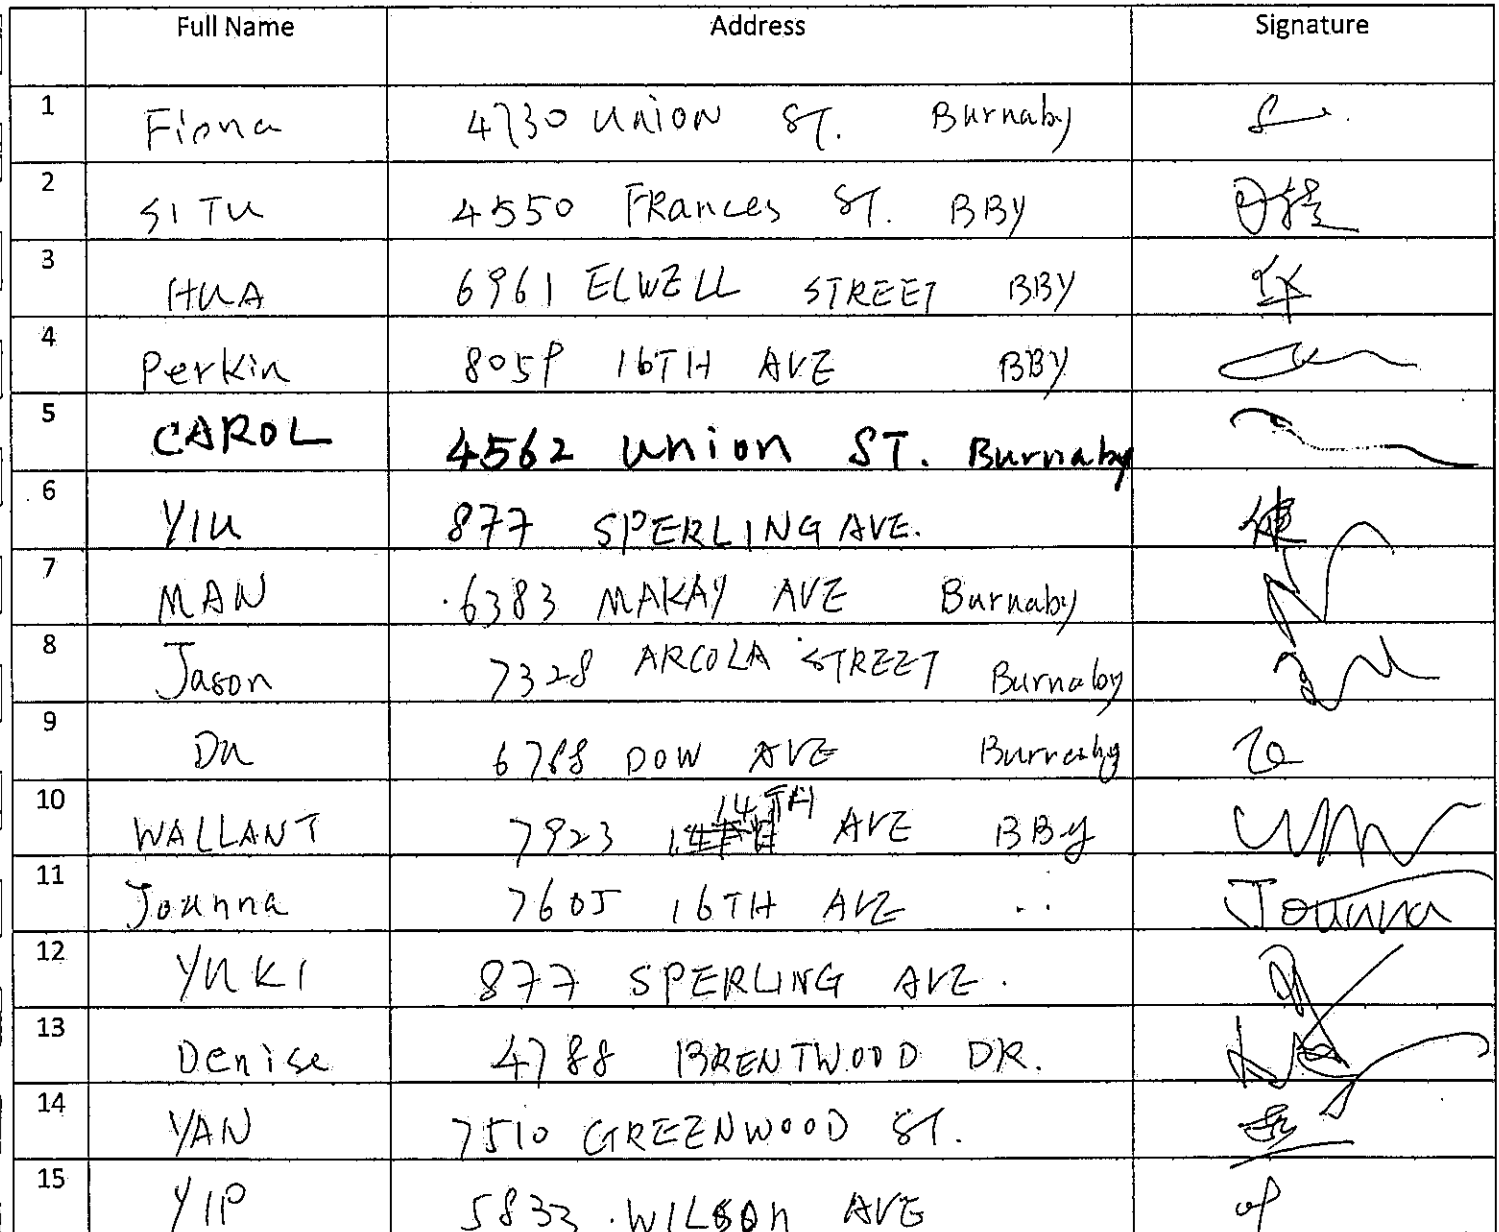 Full Name Address Signature
1 Fiona 4730 Union ST. Burnaby
2 SITU 4550 FRances ST. BBY
3 HUA 6961 ELWELL STREET BBY 华
4 Perkin 8059 16TH AVE BBY
5 CAROL 4562 Union ST. Burnaby
6 YIU 877 SPERLING AVE. 健
7 MAN 6383 MAKAY AVE Burnaby
8 Jason 7328 ARCOLA STREET Burnaby
9 Du 6788 DOW AVE Burnaby
10 WALLANT 7923 14TH AVE BBy
11 Jounna 7605 16TH AVE .. Jounna
12 YUKI 877 SPERLING AVE.
13 Denise 4788 BRENTWOOD DR.
14 YAN 7510 GREENWOOD ST.
15 YIP 5833 WILSON AVE